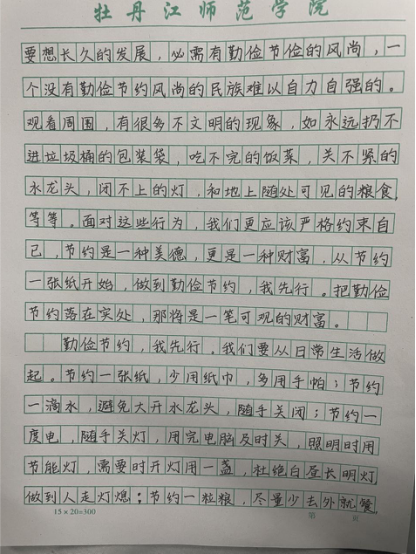 牡丹江师范学院
要想长久的发展，必需有勤俭节俭的风尚，一
个没有勤俭节约风尚的民族难以自力自强的。
观看周围，有很多不文明的现象，如永远扔不
进垃圾桶的包装袋，吃不完的饭菜，关不紧的
水龙头，闭不上的灯，和地上随处可见的粮食，
等等。面对这些行为，我们更应该严格约束自
己，节约是一种美德，更是一种财富，从节约
一张纸开始，做到勤俭节约，我先行。把勤俭
节约落在实处，那将是一笔可观的财富。
勤俭节约，我先行。我们要从日常生活做
起。节约一张纸，少用纸巾，多用手帕；节约
一滴水，避免大开水龙头，随手关闭；节约一
度电，随手关灯，用完电脑及时关，照明时用
节能灯，需要时开灯用一盏，杜绝白昼长明灯
做到人走灯熄；节约一粒粮，尽量少去外就餐
15×20=300 第 页